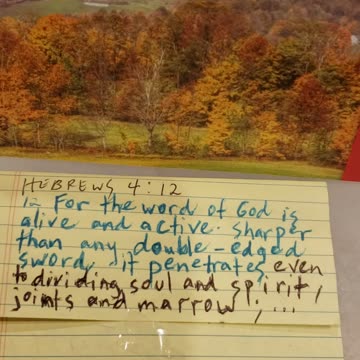 HEBREWS 4:12
12 For the word of God is
alive and active. Sharper
than any double-edged
sword, it penetrates even
to dividing soul and spirit,
joints and marrow; ...